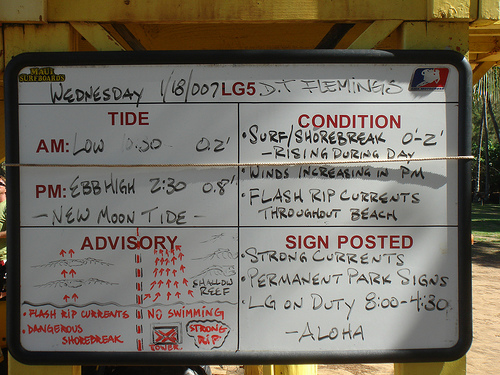 MAUI
SURFBOARDS
WEDNESDAY 1/18/007 LG5 D.T FLEMINGS
TIDE
AM: LOW :30 0.2'
PM: EBB HIGH 2:30 0.8'
- NEW MOON TIDE -
CONDITION
• SURF/SHOREBREAK 0'-2'
- RISING DURING DAY
• WINDS INCREASING IN PM
• FLASH RIP CURRENTS
THROUGHOUT BEACH
ADVISORY
SHALLOW
REEF
• FLASH RIP CURRENTS
• DANGEROUS
SHOREBREAK
NO SWIMMING
STRONG
RIP
SIGN POSTED
• STRONG CURRENTS
• PERMANENT PARK SIGNS
• LG ON DUTY 8:00-4:30
- ALOHA